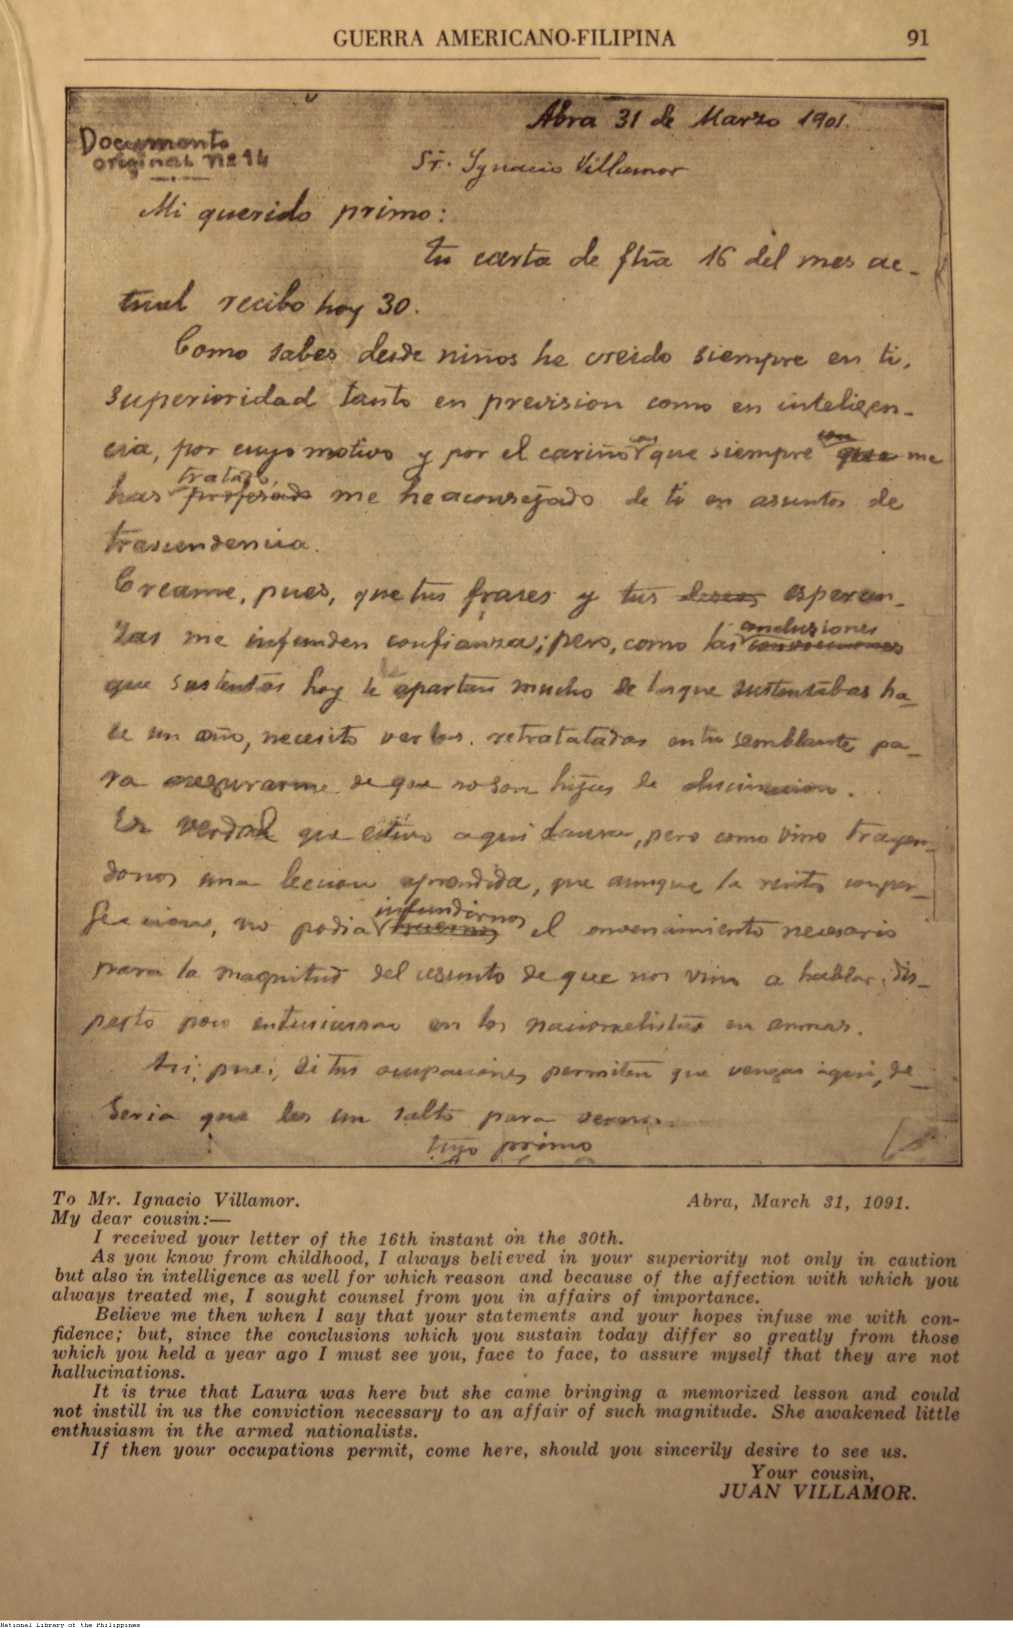 GUERRA AMERICANO-FILIPINA 91
Abra 31 de Marzo 1901.
Documento
original Nº 14
Sr. Ygnacio Villamor
Mi querido primo:
tu carta de fha 16 del mes ac-
tual recibo hoy 30.
Como sabes desde niños he creido siempre en ti,
superioridad tanto en prevision como en inteligen-
cia, por cuyo motivo y por el cariño que siempre me
has tratado, me he aconsejado de ti en asuntos de
trascendencia.
Creame, pues, que tus frases y tus deseos esperan-
zas me infunden confianza; pero, como las conclusiones
que sustentas hoy se apartan mucho de las que sustentabas ha-
ce un año, necesito verlas retratadas en tu semblante pa-
ra asegurarme de que no son hijas de alucinacion.
Es verdad que estuvo aqui Laura, pero como vino trayen-
donos una leccion aprendida, que aunque la recitó con per-
feccion, no podia infundirnos el convencimiento necesario
para la magnitud del asunto de que nos vino a hablar; des-
pertó poco entusiasmo en los nacionalistas en armas.
Asi, pues, si tus ocupaciones permiten que vengas aqui, de-
searia que des un salto para vernos.
tuyo primo
To Mr. Ignacio Villamor. Abra, March 31, 1091.
My dear cousin:—
I received your letter of the 16th instant on the 30th.
As you know from childhood, I always believed in your superiority not only in caution
but also in intelligence as well for which reason and because of the affection with which you
always treated me, I sought counsel from you in affairs of importance.
Believe me then when I say that your statements and your hopes infuse me with con-
fidence; but, since the conclusions which you sustain today differ so greatly from those
which you held a year ago I must see you, face to face, to assure myself that they are not
hallucinations.
It is true that Laura was here but she came bringing a memorized lesson and could
not instill in us the conviction necessary to an affair of such magnitude. She awakened little
enthusiasm in the armed nationalists.
If then your occupations permit, come here, should you sincerily desire to see us.
Your cousin,
JUAN VILLAMOR.
National Library of the Philippines